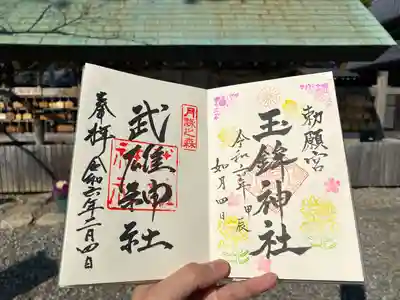 勅願宮
玉鉾神社
令和六年 甲辰
如月四日
月詠之森
武雄神社
奉拝 令和六年二月四日